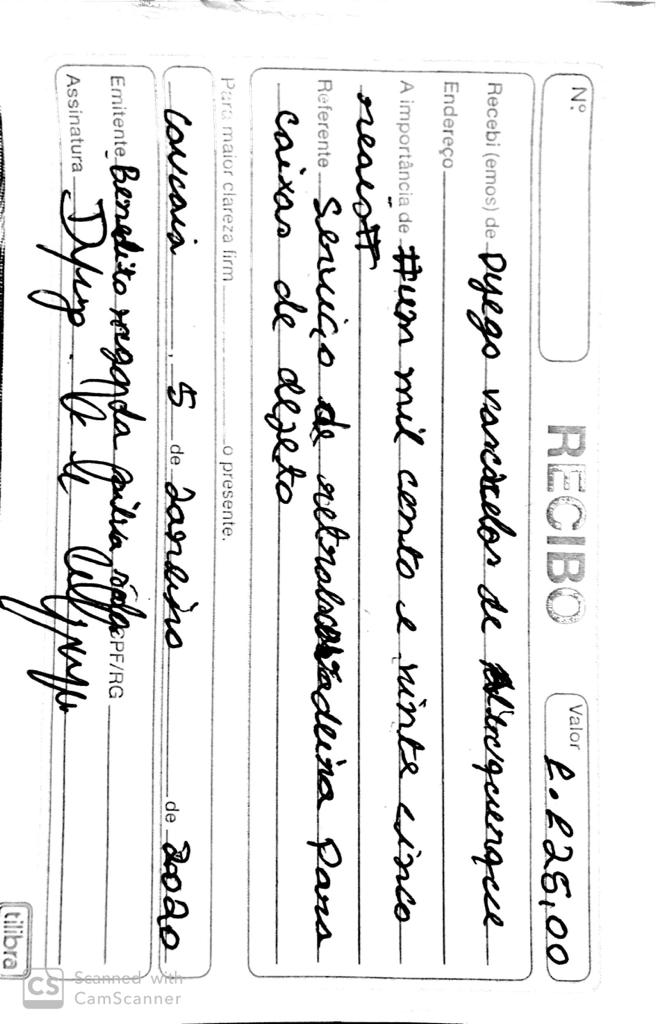 Nº
RECIBO
Valor 1.125,00
Recebi (emos) de Dyego vasconcelos de Albuquerque
Endereço
A importância de #um mil cento e vinte cinco
reais#
Referente Serviço de retroescavadeira Para
caixas de dejeto
Para maior clareza firm o presente.
Caucaia, 5 de Janeiro de 2020
Emitente Benedito CPF/RG
Assinatura
tilibra
CS Scanned with
CamScanner